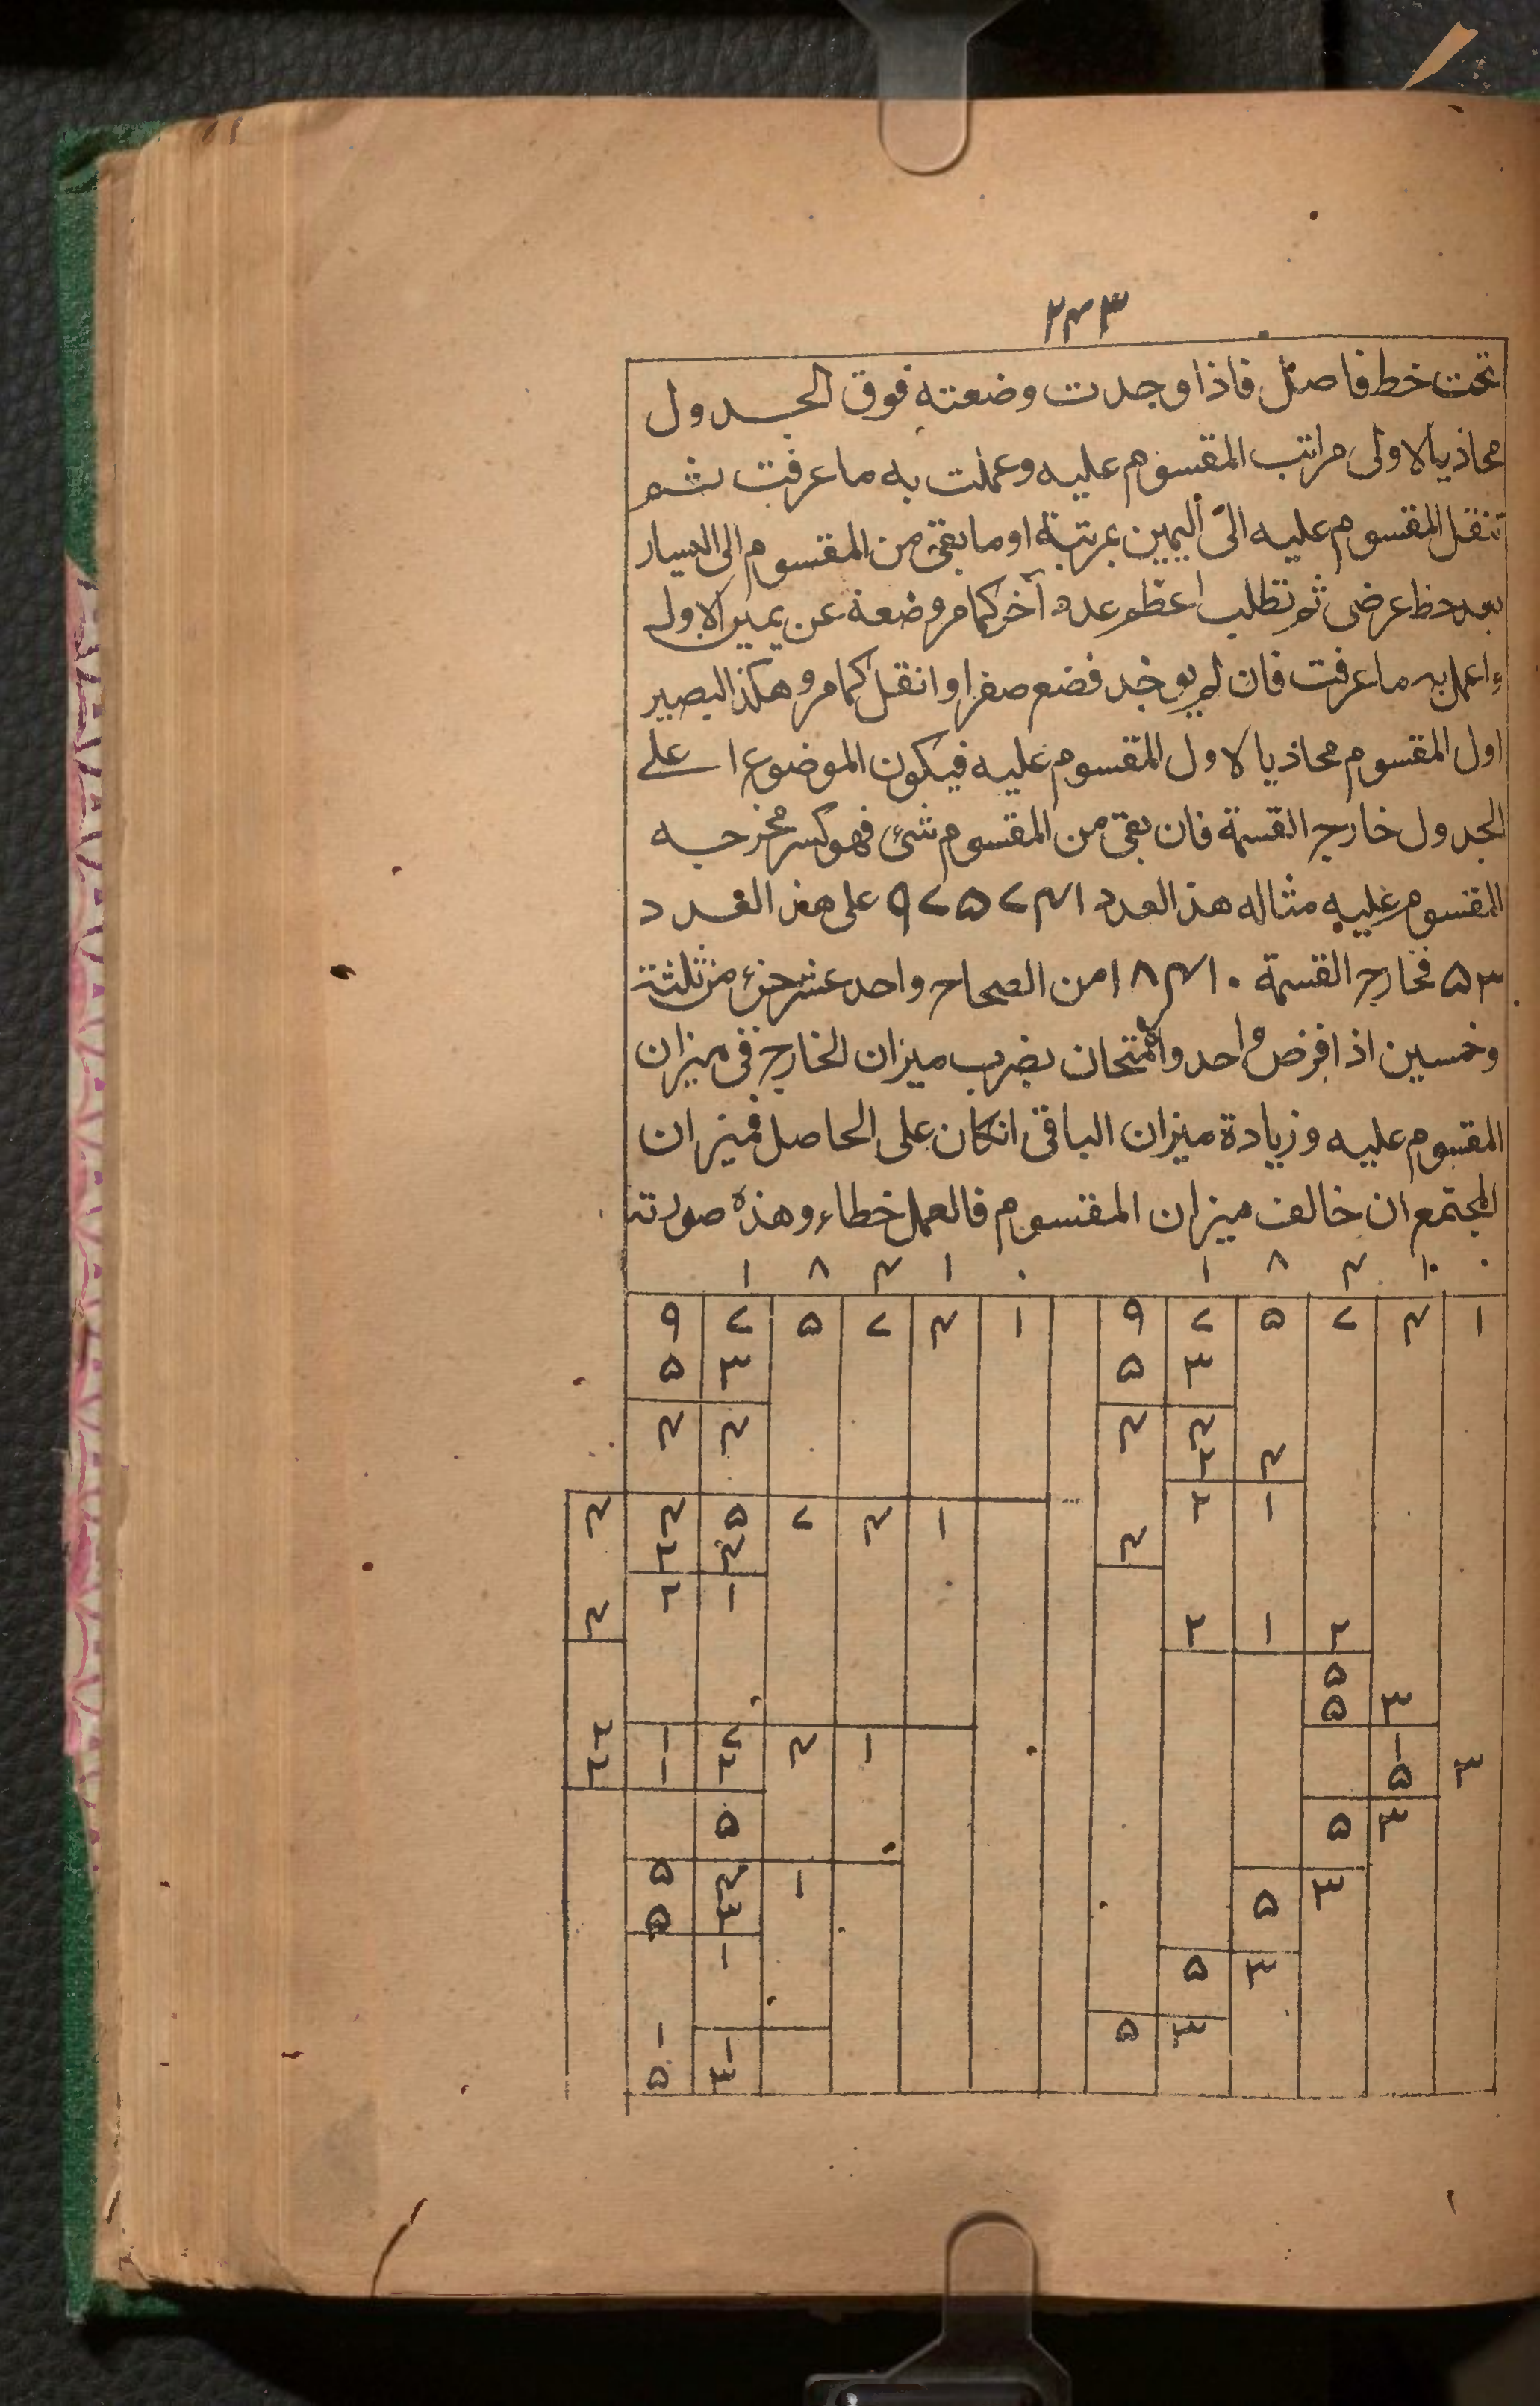 ٢٤٣
تحت خط فاصل فاذا وجدت وضعته فوق الجدول
محاذيا لاولى مراتب المقسوم عليه وعملت به ما عرفت ثم
تنقل المقسوم عليه الى اليمين بمرتبة او ما بقى من المقسوم الى اليسار
بعد خط عرضى ثم تطلب اعظم عدد آخر كما مر وضعه عن يمين الاول
واعمل به ما عرفت فان لم يوجد فضع صفرا وانقل كما مر وهكذا ليصير
اول المقسوم محاذيا لاول المقسوم عليه فيكون الموضوع اعلى
الجدول خارج القسمة فان بقى من المقسوم شئ فهو كسر مخرجه
المقسوم عليه مثاله هذا العدد ٩٧٥٧٤١ على هذا العدد
٥٣ فخارج القسمة ١٨٤١٠ من الصحاح واحد عشر جزء من ثلثة
وخمسين اذا فرض واحد والامتحان بضرب ميزان الخارج فى ميزان
المقسوم عليه وزيادة ميزان الباقى انكان على الحاصل فميزان
المجتمع ان خالف ميزان المقسوم فالعمل خطاء وهذه صورته
١ ٨ ٤ ١ ٠ ١ ٨ ٤ ١ ٠
٩ ٧ ٥ ٧ ٤ ١ ٩ ٧ ٥ ٧ ٤ ١
٥ ٣ ٥ ٣
٤ ٤ ٤ ٤
٢ ٤
٤ ٤ ٥ ٧ ٤ ١ ٢ ١
٢ ٤ ٤
٢ ١
٤ ٢ ١ ٢
٥
٥ ٣
٢ ١ ٧ ٤ ١ ١
٢ ١ ٢ ٥ ٣
٥ ٥ ٣
٥ ٤ ١ ٥ ٣
٥ ٣
١ ٥ ٣
١ ١ ٥ ٣
٥ ٣